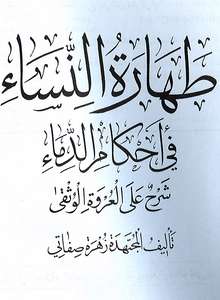 طَهَارَةُ النِّسَاءِ
فِي أَحْكَامِ الدِّمَاءِ
شَرْحٌ عَلَى الْعُرْوَةِ الْوُثْقَى
تَأْلِيفُ الْمُجْتَهِدَةِ زُهْرَة صِفَاتِي